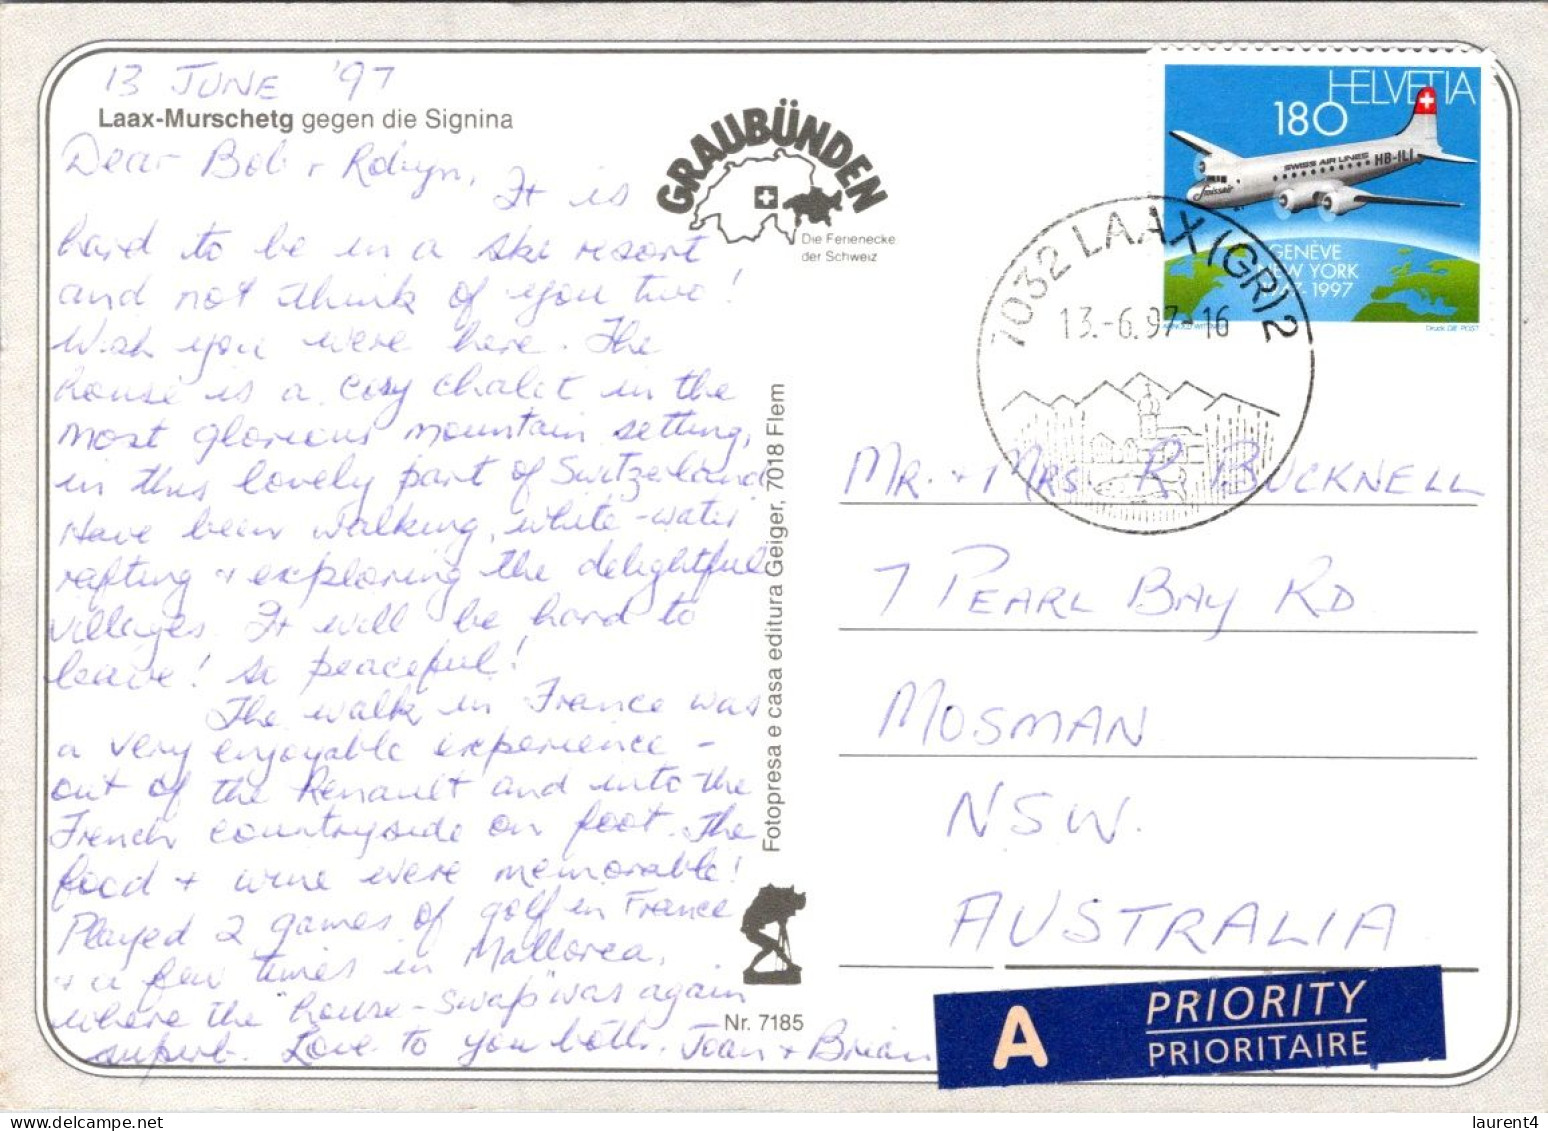 13 JUNE '97
Laax-Murschetg gegen die Signina
Dear Bob + Robyn, It is
hard to be in a ski resort
and not think of you two!
Wish you were here. The
house is a cosy chalet in the
most glorious mountain setting,
in this lovely part of Switzerland
Have been walking, white-water
rafting + exploring the delightful
villages. It will be hard to
leave! So peaceful!
The walk in France was
a very enjoyable experience -
out of the Renault and into the
French countryside on foot. The
food + wine were memorable!
Played 2 games of golf in France
+ a few times in Mallorca,
where the "house-swap" was again
superb. Love to you both. Joan + Brian
GRAUBÜNDEN
Die Ferienecke
der Schweiz
Fotopresa e casa editura Geiger, 7018 Flem
Nr. 7185
HELVETIA
180
SWISS AIR LINES HB-ILI
Swissair
GENÈVE
NEW YORK
1947-1997
Druck DIE POST
7032 LAAX (GR) 2
13.-6.97-16
MR. + MRS R BUCKNELL
7 PEARL BAY RD
MOSMAN
NSW.
AUSTRALIA
A PRIORITY
PRIORITAIRE
laurent4